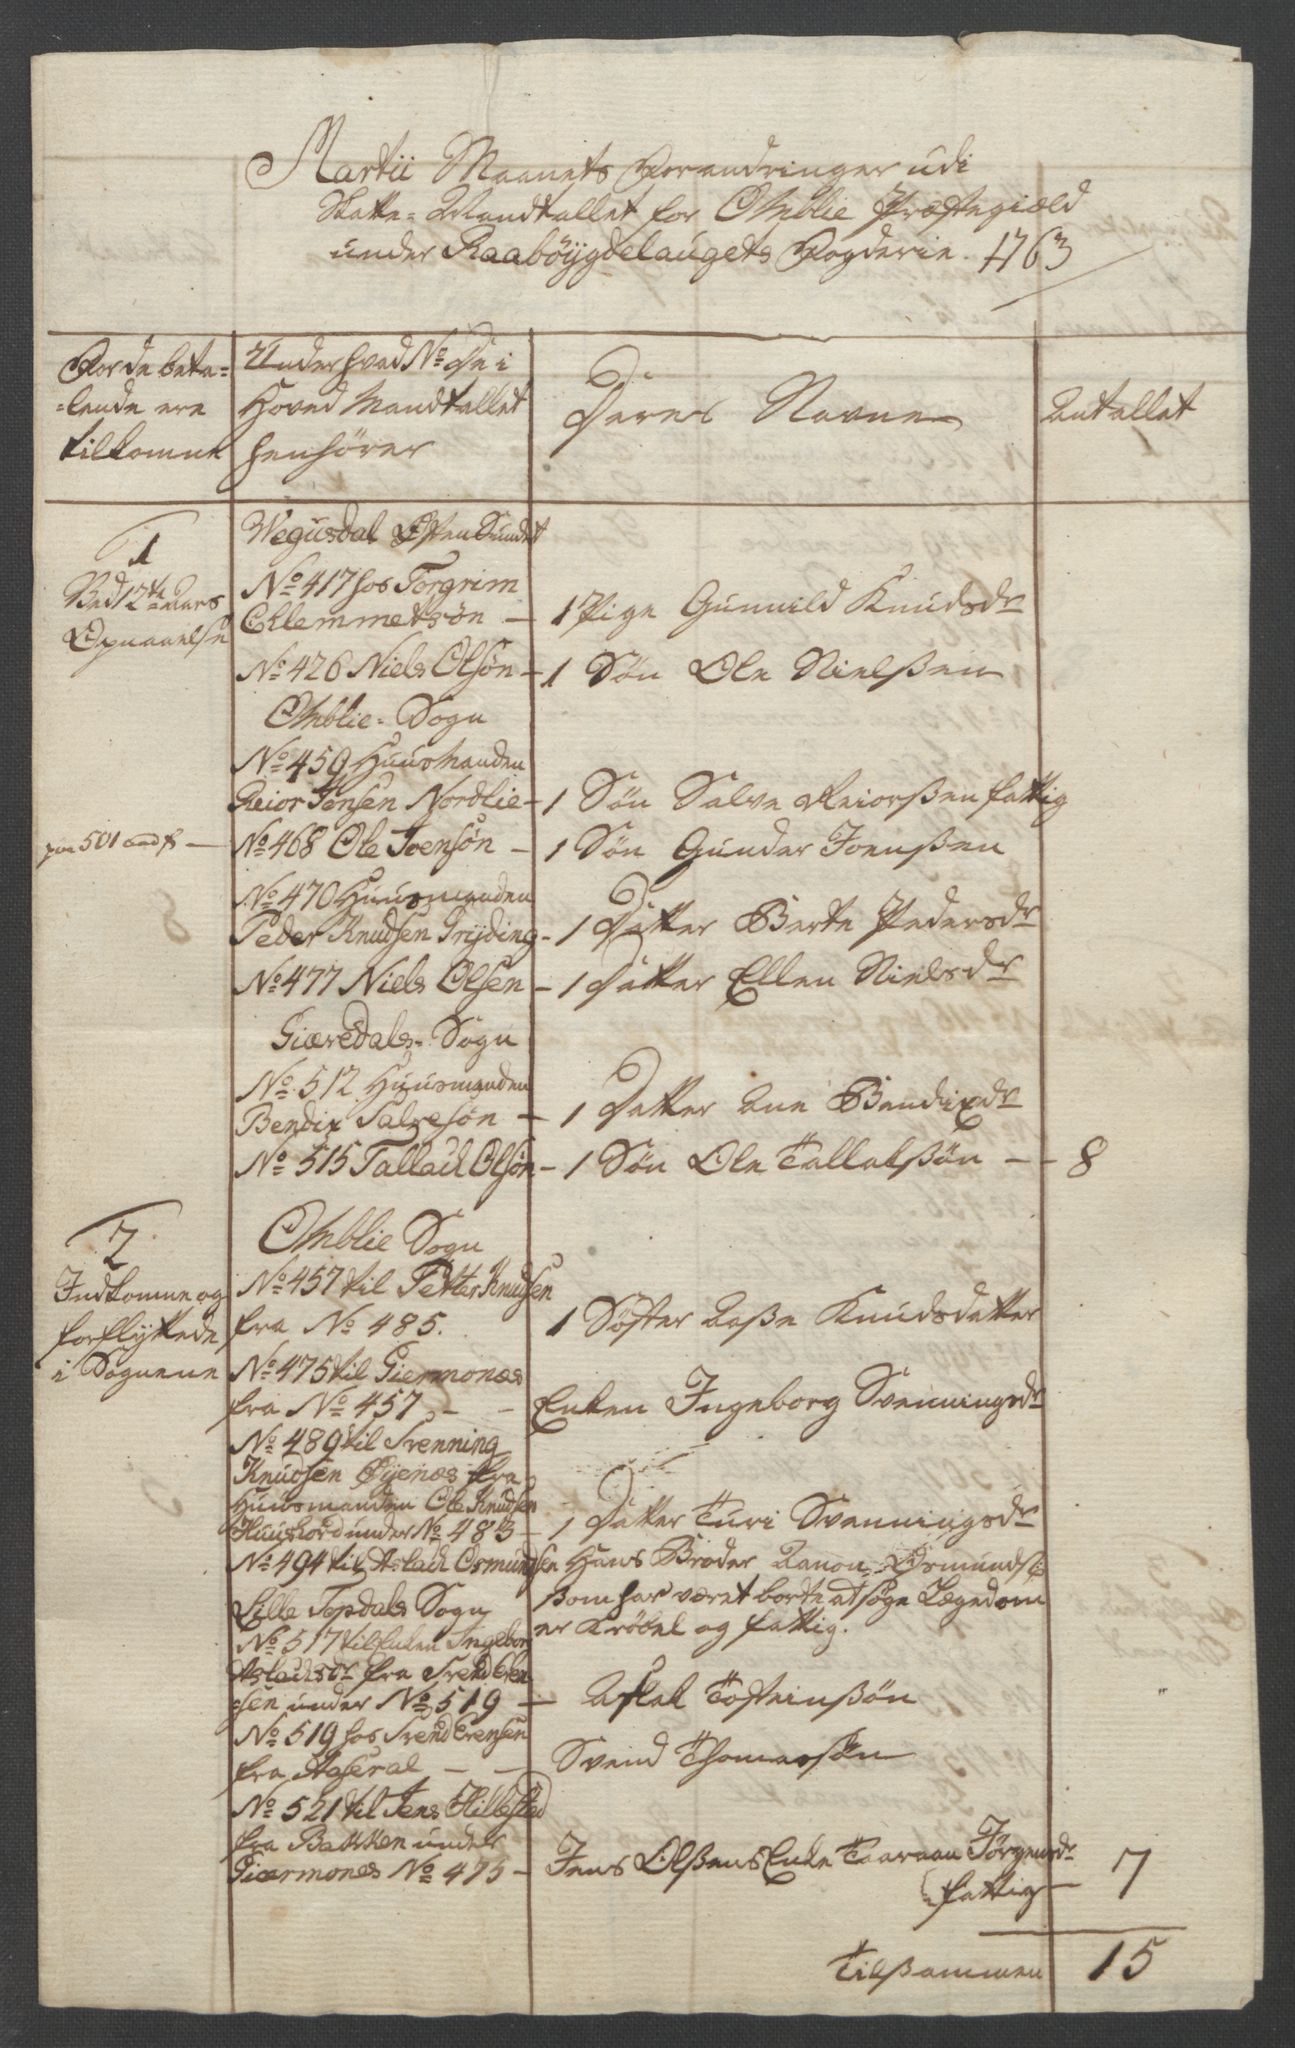 Martii Maanets Forandringer udi
Skatte-Mandtallet for Omblie Præstegiæld
under Raaböÿgdelaugets Fogderie. 1763
For de beta-
-lende ere
tilkomne
Under hvad No de i
Hoved Mandtallet
henhörer
Deres Navne
Antallet
1
Ved 12te Aars
Opnaaelse
Wegusdal Østen Sundet
No 417 hos Torgrim
Chlemmetsøn — 1 Pige Gunnild Knudsdr
No 426 Niels Olsøn — 1 Søn Ole Nielssen
Omblie-Sogn
No 459 Huusmanden
Reior Jensen Nordlie — 1 Søn Salve Reiorssen fattig
501
No 468 Ole Joensøn — 1 Søn Gunder Joenssen
No 470 Huusmanden
Peder Knudsen Grÿding — 1 Datter Berte Pedersdr
No 477 Niels Olsen — 1 Datter Ellen Nielsdr
Giæredals-Sogn
No 512 Huusmanden
Bendix Salvesøn — 1 Datter Ane Bendixdr
No 515 Tallack Olsøn — 1 Søn Ole Tallaksøn — 8
2
Indkomne og
forflyttede
i Sognene
Omblie Sogn
No 457 til Petter Knudsen
fra No 485. 1 Søster Aasse Knudsdatter
No 475 til Giermonæs
fra No 457 — Enken Ingeborg Svenningsdr
No 489 til Svenning
Knudsen Øyenæs fra
Huusmanden Ole Knudsen
Huusfiord under No 483 — 1 Datter Turi Svenningsdr
No 494 til Aslach Osmundsen Hans Broder Aanon Osmunds:
som har været borte at søge Lægedom
er Krøbel og fattig.
Lille Topdals Sogn
No 517 til Enken Ingebor
Aslachsdr fra Svend Even
-sen under No 519 — Aslak Tosteinssøn
No 519 hos Svend Evensen
fra Aaseral — — Svend Thomassøn
No 521 til Jens Hillestad
fra Bakken under
Giærmones No 475 — Jens Olssens Enke Taaraan Jörgensdr
fattig — 7
Tilsammen 15